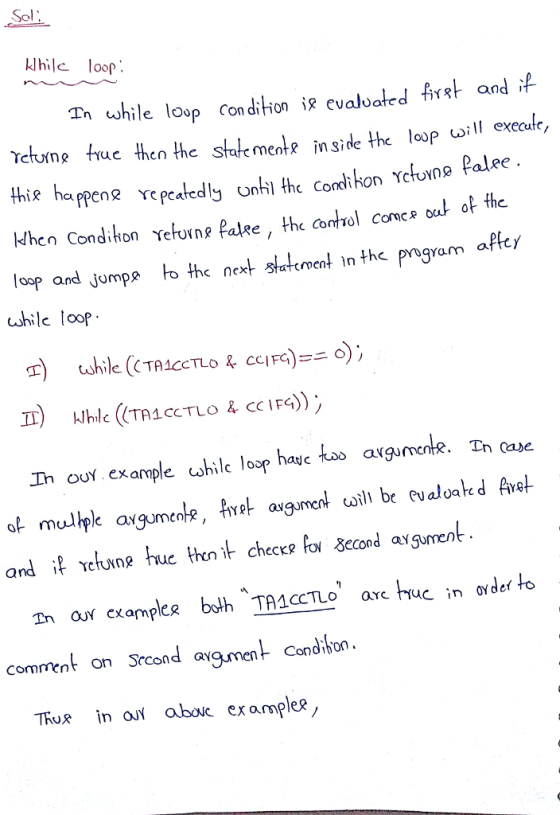 Sol:
While loop:
In while loop condition is evaluated first and if
returns true then the statements inside the loop will execute,
this happens repeatedly until the condition returns false.
When Condition returns false, the control comes out of the
loop and jumps to the next statement in the program after
while loop.
I) while ((TA1CCTL0 & CCIFG)== 0);
II) While ((TA1CCTL0 & CCIFG));
In our example while loop have two arguments. In case
of multiple arguments, first argument will be evaluated first
and if returns true then it checks for second argument.
In our examples both "TA1CCTL0" are true in order to
comment on second argument condition.
Thus in our above examples,